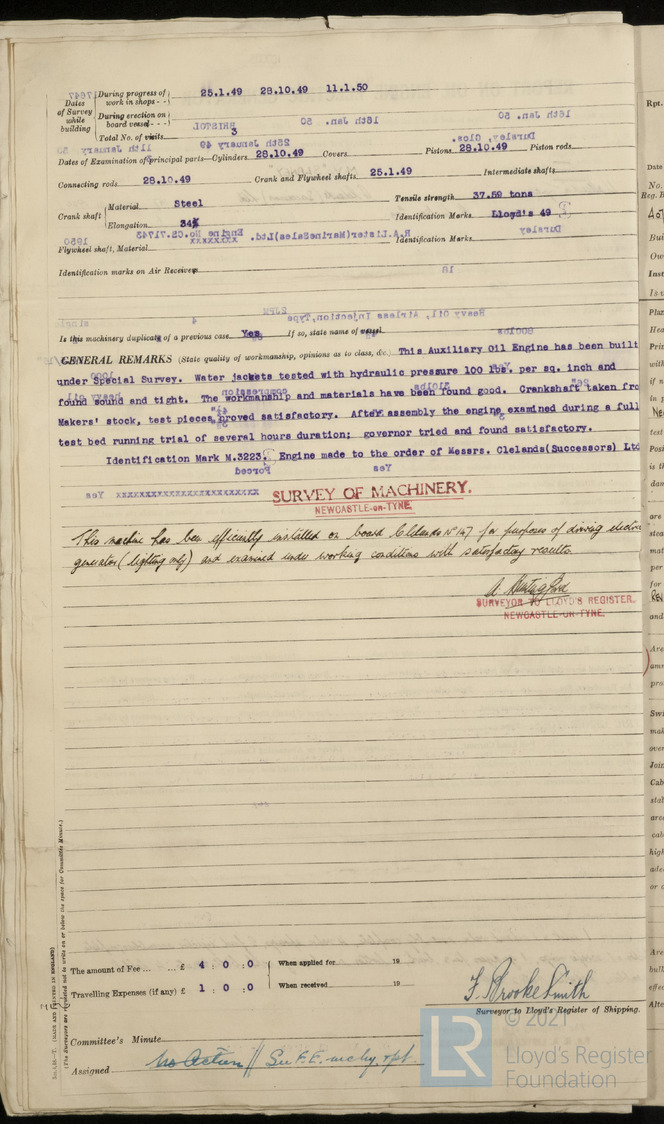 Dates of Survey while building
During progress of work in shops - - 25.1.49 28.10.49 11.1.50
During erection on board vessel - - -
Total No. of visits 3
Dates of Examination of principal parts—Cylinders 28.10.49 Covers Pistons 28.10.49 Piston rods
Connecting rods 28.10.49 Crank and Flywheel shafts 25.1.49 Intermediate shafts
Crank shaft Material Steel Tensile strength 37.59 tons
Elongation 34% Identification Marks Lloyd's 49
Flywheel shaft, Material Identification Marks
Identification marks on Air Receivers
Is this machinery duplicate of a previous case Yes If so, state name of vessel
GENERAL REMARKS (State quality of workmanship, opinions as to class, &c. This Auxiliary Oil Engine has been built
under Special Survey. Water jackets tested with hydraulic pressure 100 lbs. per sq. inch and
found sound and tight. The workmanship and materials have been found good. Crankshaft taken fro
Makers' stock, test pieces proved satisfactory. After assembly the engine examined during a full
test bed running trial of several hours duration; governor tried and found satisfactory.
Identification Mark M.3223. Engine made to the order of Messrs. Clelands(Successors) Ltd
SURVEY OF MACHINERY.
NEWCASTLE-on-TYNE.
This machine has been efficiently installed on board Clelands No 147 for purposes of driving electric
generator (lighting only) and examined under working conditions with satisfactory results.
SURVEYOR TO LLOYD'S REGISTER.
NEWCASTLE-ON-TYNE.
The amount of Fee ... ... £ 4 : 0 : 0 When applied for 19
Travelling Expenses (if any) £ 1 : 0 : 0 When received 19
F. Brooke Smith
Surveyor to Lloyd's Register of Shipping.
Committee's Minute
Assigned No Action // See F.E. mchy. rpt.
(MADE AND PRINTED IN ENGLAND)
(The Surveyors are requested not to write on or below the space for Committee Minute.)
© 2021
LR
Lloyd's Register
Foundation